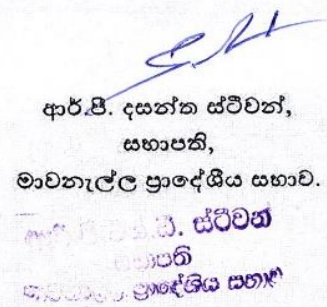 ආර්.පී. දසන්ත ස්ටීවන්,
සභාපති,
මාවනැල්ල ප්‍රාදේශීය සභාව.
ස්ටීවන්
සභාපති
ප්‍රාදේශීය සභාව